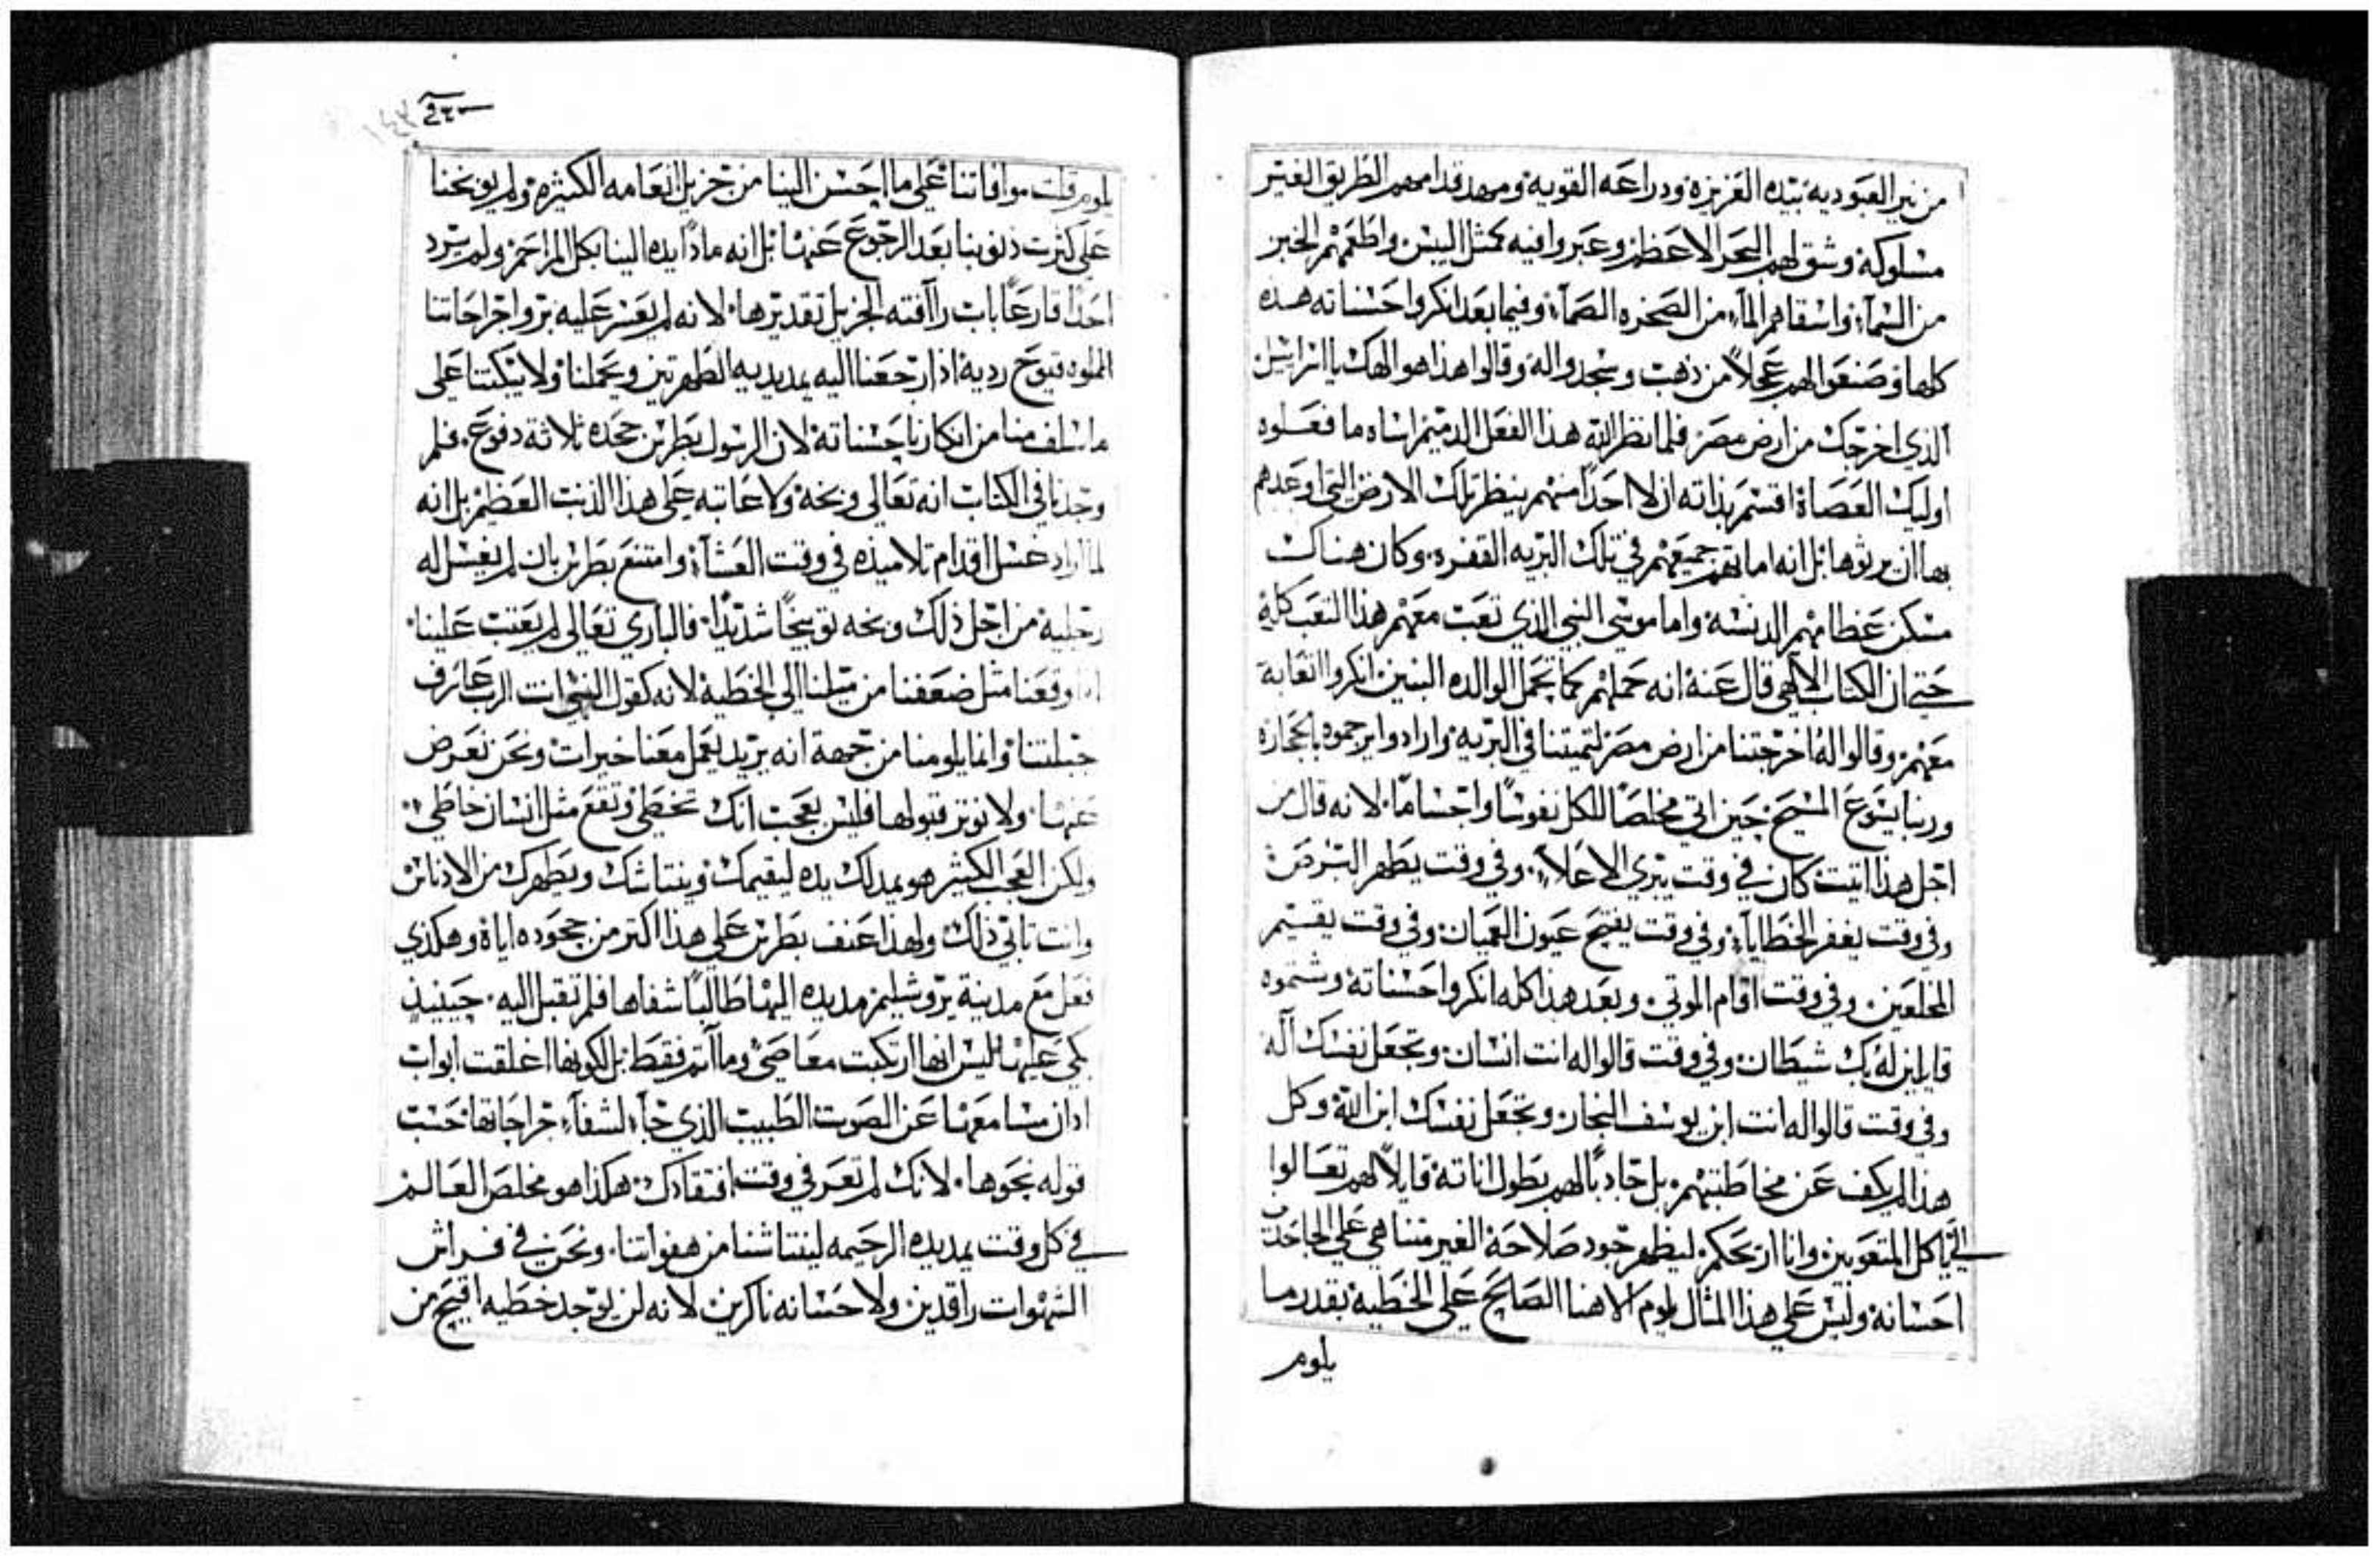 من نير العبوديه بيده العزيزه ودراعه القويه ومهد قدامهم الطريق الغير
مسلوكه وشق لهم البحر الاعظم وعبروا فيه كمثل اليبس واطعمهم الخبز
من السمآء واسقاهم المآء من الصخره الصمآء وفيما بعد انكروا احسناته هذه
كلها وصنعوا لهم عجلاً من ذهب وسجدوا له وقالوا هذا هو الهك يا اسراييل
الذي اخرجك من ارض مصر فلما نظر الله هذا الفعل الدميم اساه ما فعلوه
اوليك العصاة اقسم بذاته ان لا احداً منهم ينظر تلك الارض التي اوعدهم
بها ان يرثوها بل انه اماتهم جميعهم في تلك البريه القفره وكان هناك
مسكن عظامهم الدنسه واما موسي النبي الذي تعب معهم هذا التعب كله
حتي ان الكتاب الالهي قال عنه انه حملهم كما تحمل الوالده البنين انكروا اتعابه
معهم وقالوا له اخرجتنا من ارض مصر لتميتنا في البريه وارادوا يرجموه بالحجاره
وربنا يسوع المسيح حين اتي مخلصاً للكل نفوساً واجساماً لانه قال من
اجل هذا اتيت كان في وقت يبري الاعلاء وفي وقت يطهر البرص
وفي وقت يغفر الخطايآء وفي وقت يفتح عيون العميان وفي وقت يقسيم
المخلعين وفي وقت اقام الموتي وبعد هذا كله انكروا احسناته وشتموه
قايلين له بك شيطان وفي وقت قالوا له انت انسان وتجعل نفسك آله
وفي وقت قالوا له انت ابن يوسف النجار وتجعل نفسك ابن الله وكل
هذا لم يكف عن مخاطبتهم بل جادباً لهم بطول اناته قايلاً لهم تعالوا
الي يا كل المتعوبين وانا اريحكم ليظهر جود صلاحه الغير متناهي علي الجاحدين
احسانه وليس علي هذا المثال يلوم الاهنا الصالح علي الخطيه بقدر ما
يلوم
يلوم قلت موافاتنا علي ما احسن الينا من جزيل انعامه الكثيره ولم يوبخنا
علي كثرت ذنوبنا بعد الرجوع عنها بل انه ماداً يده الينا بكل المراحم ولم يرد
احداً قارعاً باب راآفته الجزيل تقديرها لانه لم يعسر عليه برو اجراحاتنا
المملوه قيوح رديه اذا رجعنا اليه يمد يديه الطهرتين ويحملنا ولا يبكتنا علي
ما سلف منا من انكارنا احسناته لان الرسول بطرس جحده ثلاثة دفوع فلم
وجدنا في الكتاب انه تعالي وبخه ولا عاتبه علي هذا الذنب العظيم بل انه
لما اراد غسل اقدام تلاميذه في وقت العشآء وامتنع بطرس بان لم يغسل له
رجليه من اجل ذلك وبخه توبيخاً شديداً فالباري تعالي لم يعتب علينا
اذا وقعنا مثل ضعفنا من ميلنا الي الخطيه لانه كقول النبي انت الرب عارف
جبلتنا وانما يلومنا من جهة انه يريد يعمل معنا خيرات ونحن نعرض
عنها ولا نوثر قبولها فليس بعجب انك تخطي وتقع مثل انسان خاطي
ولكن العجب الكثير هو يمد لك يده ليقيمك وينتاشك ويطهرك من الادناس
وانت تابي ذلك ولهذا عنف بطرس علي هذا اكتر من جحوده اياه وهكذي
فعل مع مدينة يروشليم مد يده اليها طالباً شفاها فلم تقبل اليه حينيذ
بكي عليها لليس انها ارتكبت معاصي ومآتم فقط بل لكونها اغلقت ابواب
ادان مسامعها عن الصوت الطبيب الذي جآء لشفآء جراحاتها حسب
قوله نحوها لانك لم تعرفي وقت افتقادك هكذا هو مخلص العالم
في كل وقت يمد يده الرحيمه لينتاشنا من هفواتنا ونحن في فراش
الشهوات راقدين ولاحسانه ناكرين لانه لن يوجد خطيه اقبح من